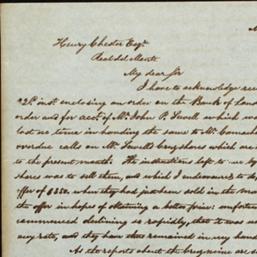 Henry Chester Esqr.
Real del Monte
My dear Sir
I have to acknowledge rece
22d inst. enclosing an order on the Bank of Lond
order and for acct. of Mr. John P. Sewell which wa
lost no time in handing the same to Mr. Camach
overdue calls on Mr. Sewell's shares which are n
to the present month. His instructions left to me by
shares was to sell them, and which I endeavoured to d
offer of $350. when they had just been sold in the ma
the offer in hopes of obtaining a better price: unfortun
commenced declining so rapidly, that it was us
any rate, and they have thus remained in my hand
As the report about the were so